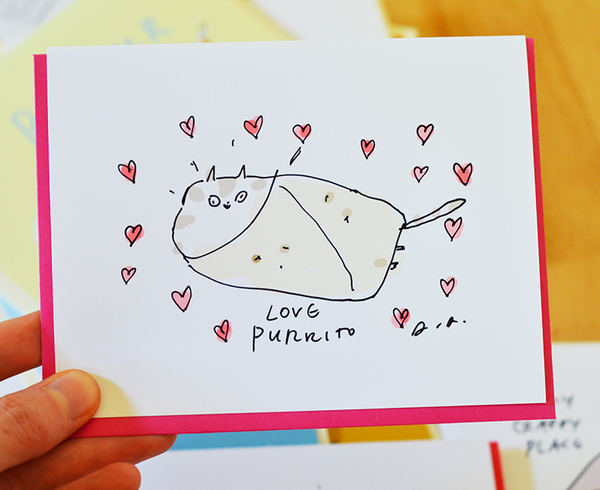 LOVE
PURRITO
CRAPPY
PLACE